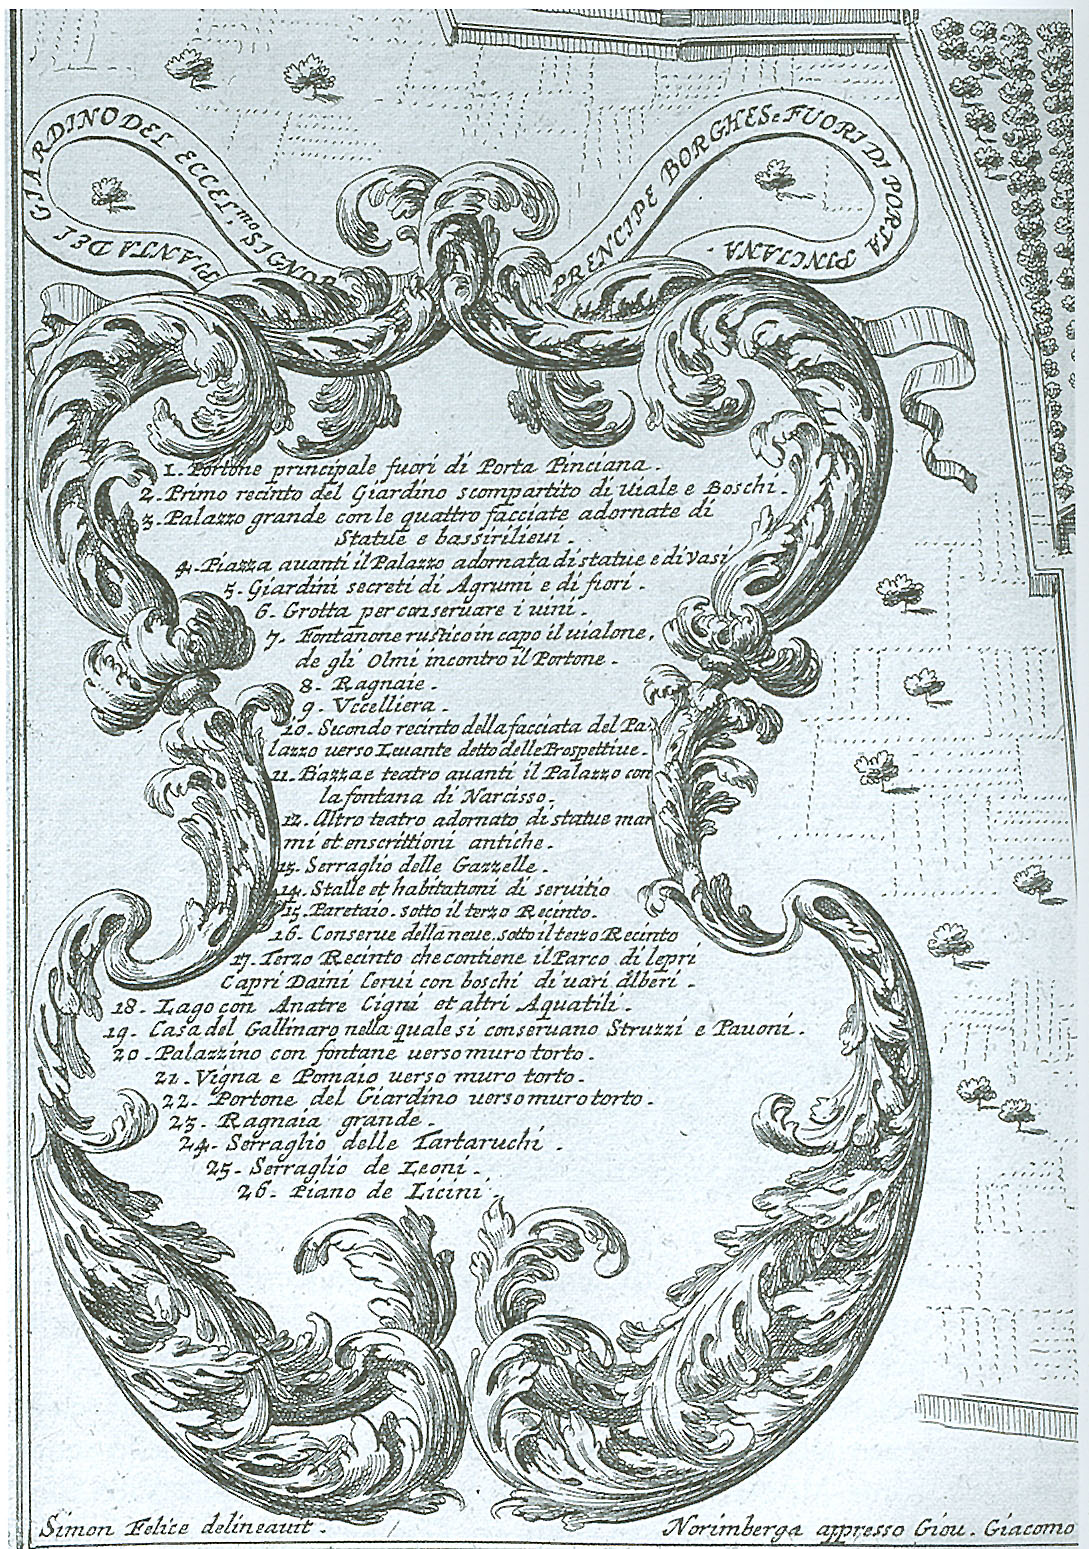 PIANTA DEL
GIARDINO DEL ECCEL.mo SIGNOR
PRENCIPE BORGHESe FUORI DI PORTA
PINCIANA.
1. Portone principale fuori di Porta Pinciana.
2. Primo recinto del Giardino scompartito di uiale e Boschi.
3. Palazzo grande con le quattro facciate adornate di
Statue e bassirilieui.
4. Piazza auanti il Palazzo adornata di statue e di Vasi
5. Giardini secreti di Agrumi e di fiori.
6. Grotta per conseruare i uini.
7. Fontanone rustico in capo il uialone,
de gli Olmi incontro il Portone.
8. Ragnaie.
9. Vccelliera.
10. Secondo recinto della facciata del Pa:
lazzo uerso Leuante detto delle Prospettiue.
11. Piazza e teatro auanti il Palazzo con
la fontana di Narcisso.
12. Altro teatro adornato di statue mar
mi et enscrittioni antiche.
13. Serraglio delle Gazzelle.
14. Stalle et habitationi di seruitio
15. Paretaio. sotto il terzo Recinto.
16. Conserue della neue. sotto il terzo Recinto
17. Terzo Recinto che contiene il Parco di lepri
Capri Daini Cerui con boschi di uari alberi.
18. Lago con Anatre Cigni et altri Aquatili.
19. Casa del Gallinaro nella quale si conseruano Struzzi e Pauoni.
20. Palazzino con fontane uerso muro torto.
21. Vigna e Pomaio uerso muro torto.
22. Portone del Giardino uerso muro torto.
23. Ragnaia grande.
24. Serraglio delle Tartaruchi.
25. Serraglio de Leoni.
26. Piano de Licini.
Simon Felice delineauit.
Norimberga appresso Giou. Giacomo